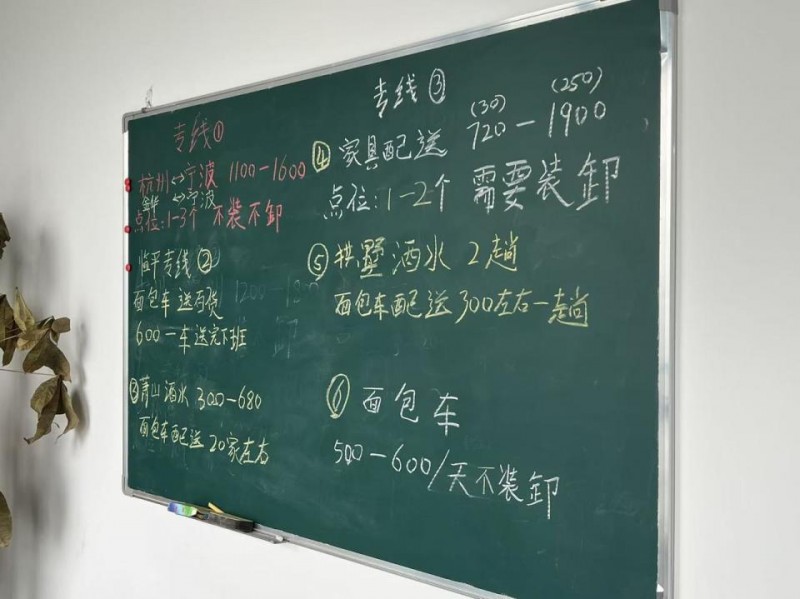 专线①
杭州↔宁波 1100-1600
↔宁波
点位:1-3个 不装不卸
临平专线②
面包车送百货
600一车送完下班
③萧山酒水 300-680
面包车配送20家左右
专线③
(30) (250)
④家具配送 720-1900
点位:1-2个 需要装卸
⑤拱墅酒水2趟
面包车配送300左右一趟
⑥面包车
500-600/天不装卸